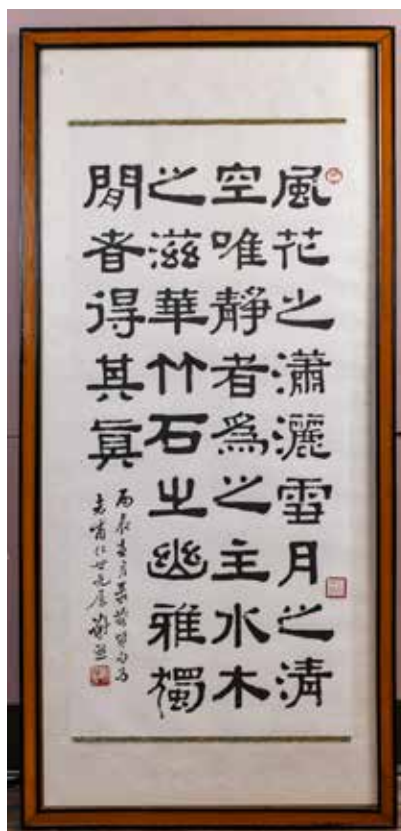 風花之瀟灑雪月之清
空唯靜者爲之主水木
之滋華竹石之幽雅獨
閒者得其眞
丙辰